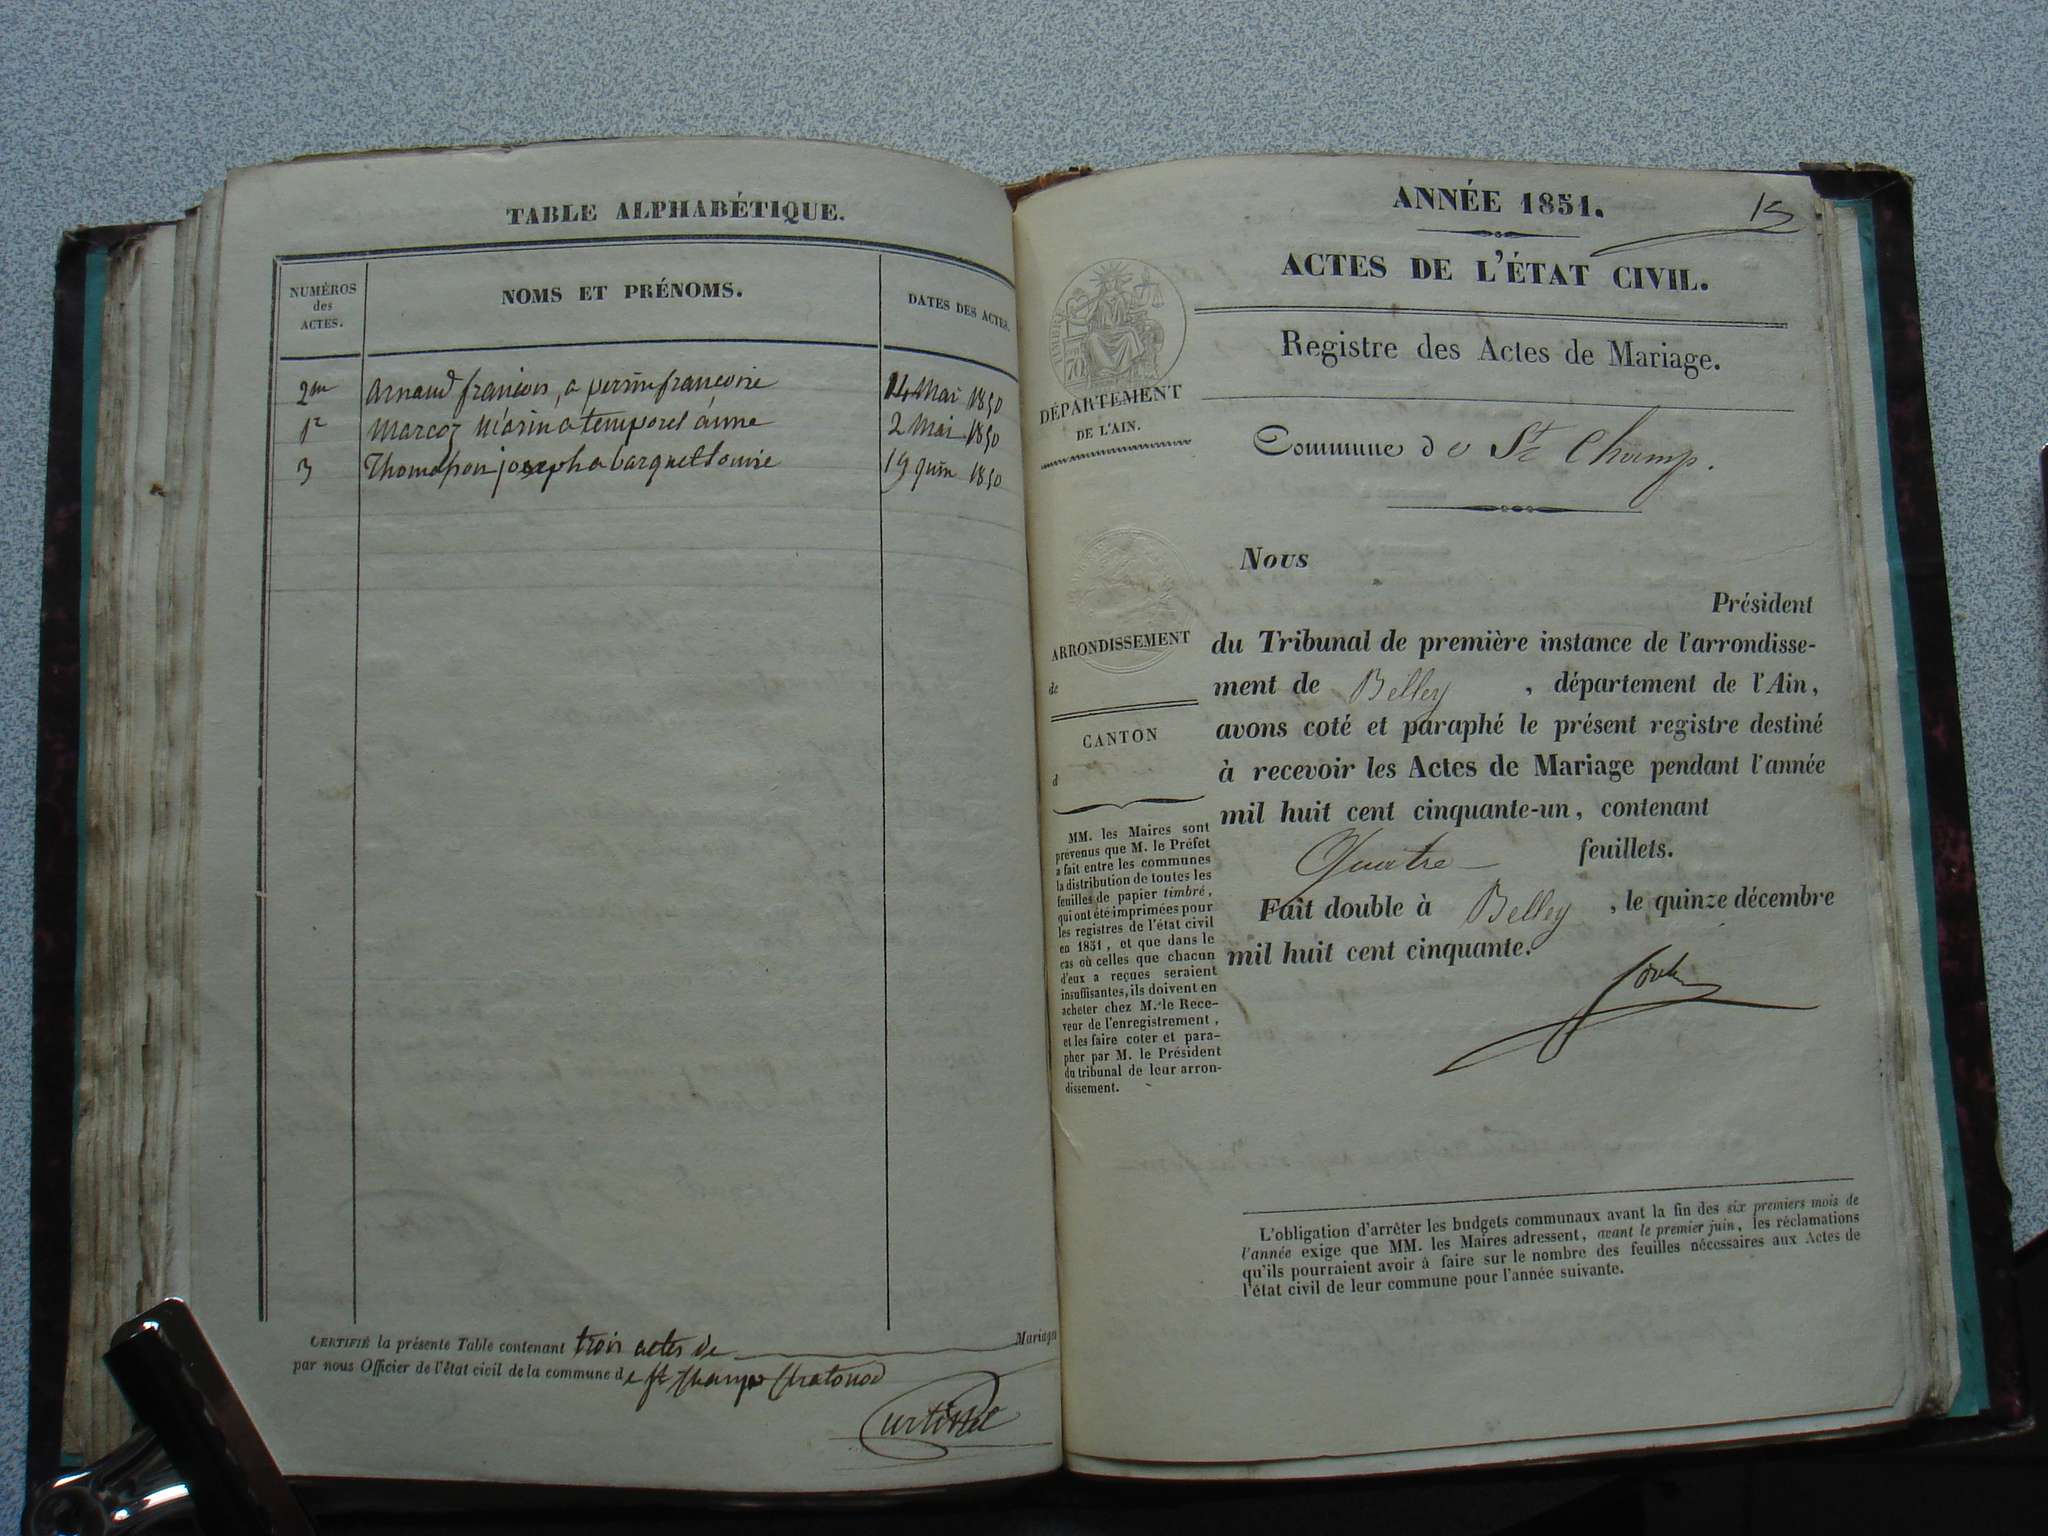 TABLE ALPHABÉTIQUE.
NUMÉROS
des
ACTES.
NOMS ET PRÉNOMS.
DATES DES ACTES.
2me Arnaud françois, a perrin françoise 14 Mai 1850
1r Marcoz Marin a temporel anne 2 Mai 1850
3 Thomasson joseph a barquet Louise 19 juin 1850
CERTIFIÉ la présente Table contenant trois actes de Mariages
par nous Officier de l'état civil de la commune de St Champ Chatonod
ANNÉE 1851.
15
ACTES DE L'ÉTAT CIVIL.
Registre des Actes de Mariage.
DÉPARTEMENT
DE L'AIN.
Commune de St Champ.
Nous
Président
ARRONDISSEMENT
de
CANTON
d
du Tribunal de première instance de l'arrondisse-
ment de Belley, département de l'Ain,
avons coté et paraphé le présent registre destiné
à recevoir les Actes de Mariage pendant l'année
mil huit cent cinquante-un, contenant
Quatre feuillets.
Fait double à Belley, le quinze décembre
mil huit cent cinquante.
MM. les Maires sont
prévenus que M. le Préfet
a fait entre les communes
la distribution de toutes les
feuilles de papier timbré,
qui ont été imprimées pour
les registres de l'état civil
en 1851, et que dans le
cas où celles que chacun
d'eux a reçues seraient
insuffisantes, ils doivent en
acheter chez M. le Rece-
veur de l'enregistrement,
et les faire coter et para-
pher par M. le Président
du tribunal de leur arron-
dissement.
L'obligation d'arrêter les budgets communaux avant la fin des six premiers mois de
l'année exige que MM. les Maires adressent, avant le premier juin, les réclamations
qu'ils pourraient avoir à faire sur le nombre des feuilles nécessaires aux Actes de
l'état civil de leur commune pour l'année suivante.